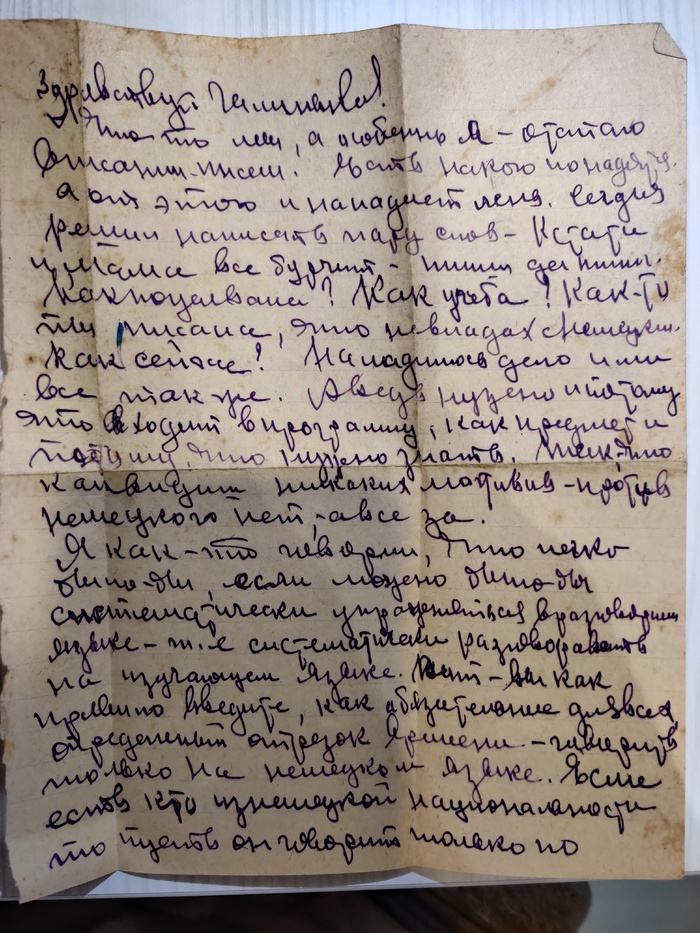 Здравствуй Галиночка!
Что то мы, а особенно я - отстаю
писании писем. Есть на кого понадеятся.
а от этого и нападает лень. Сегдня
решил написать пару слов - Кстати
и Мама все бурчит, - пиши да пиши.
Как поцелвала? Как учеба? Как-то
ты писала, что невладах с немецким.
Как сейчас? Наладилось дело или
все также. А ведь нужно и потому
что входит в программу, как предмет и
потому, что нужно знать. Так-что
как видиш никаких мотивив - против
немецкого нет, - а все за.
Я как-то говорил, что легко
было-бы, если можно было-бы
систематически упражняться в разговорном
языке - т.е систематически разговоравать
на изучающем языке. Вот - вы как
правило введите, как обязательное для всех
определеный отрезок времени - говорить
только на немецком языке. Если
есть кто из немецкой национальности
то пусть он говорит только по